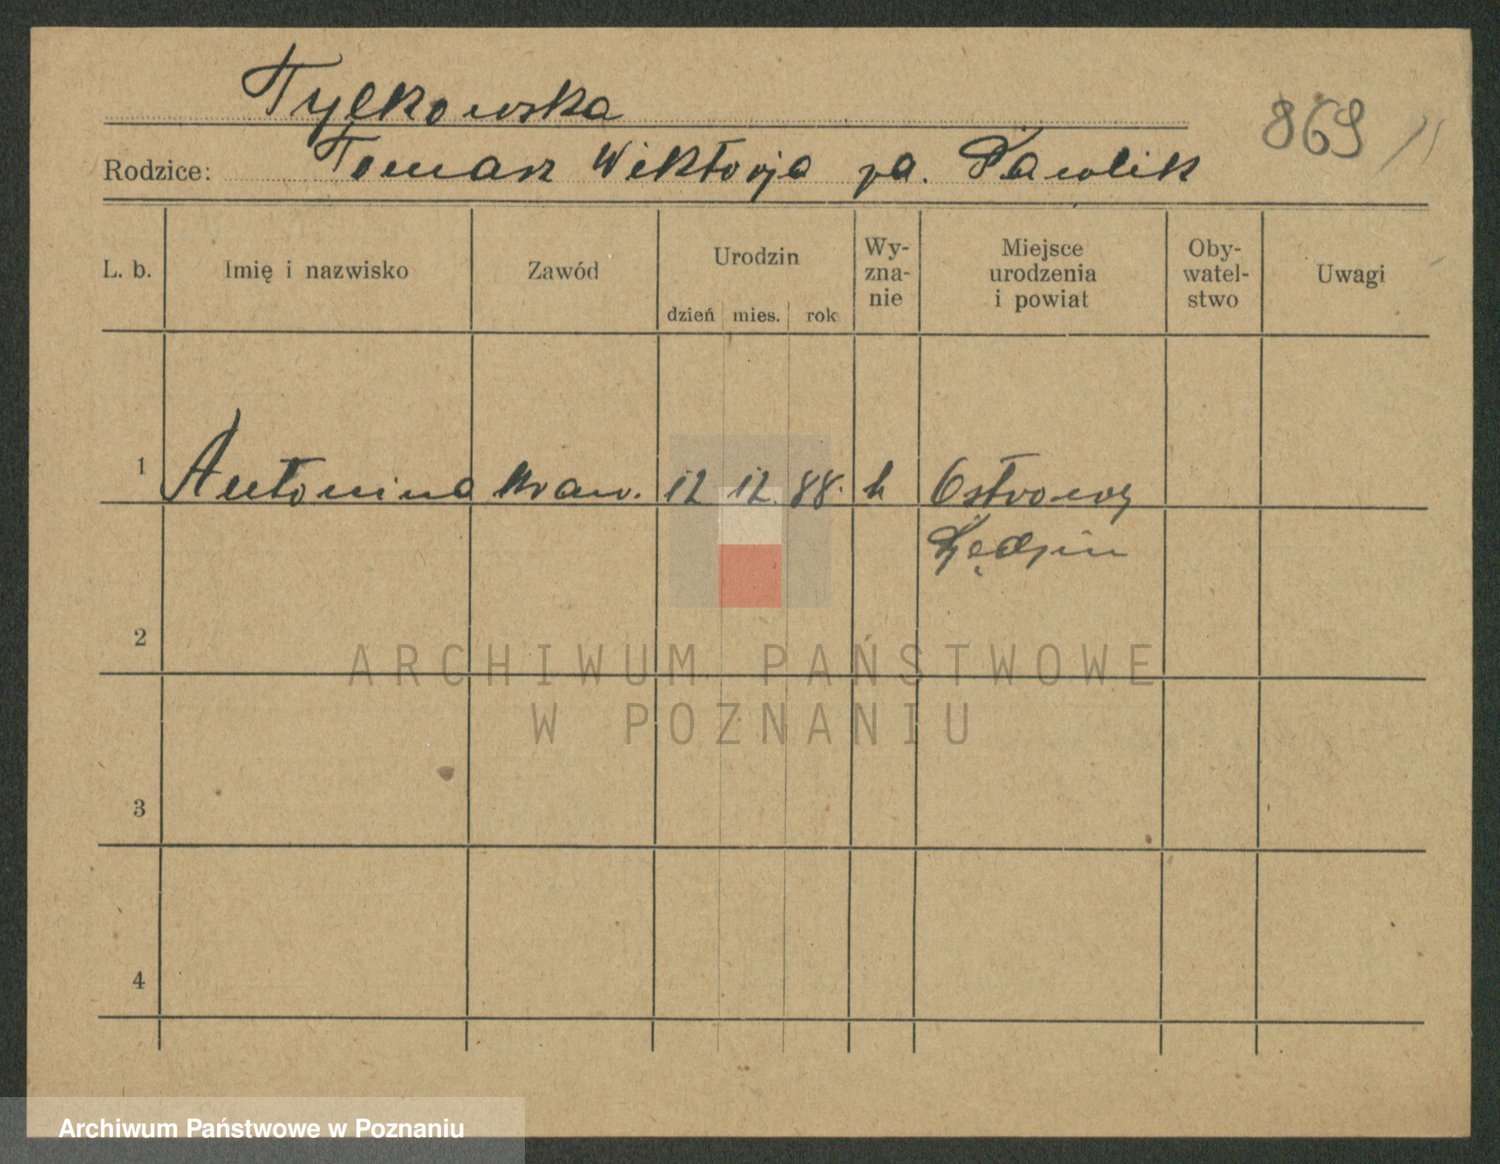 Tylkowska
869
Rodzice: Tomasz Wiktorja za. Pawlik
L. b.
Imię i nazwisko
Zawód
Urodzin
dzień mies. rok
Wy-
zna-
nie
Miejsce
urodzenia
i powiat
Oby-
watel-
stwo
Uwagi
1 Antonina kraw. 12 12. 88. k
2
3
4
ARCHIWUM PAŃSTWOWE
W POZNANIU
Archiwum Państwowe w Poznaniu